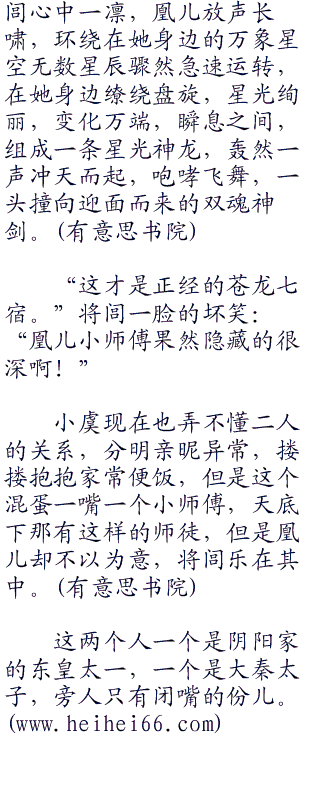 闾心中一凛，凰儿放声长
啸，环绕在她身边的万象星
空无数星辰骤然急速运转，
在她身边缭绕盘旋，星光绚
丽，变化万端，瞬息之间，
组成一条星光神龙，轰然一
声冲天而起，咆哮飞舞，一
头撞向迎面而来的双魂神
剑。(有意思书院)
“这才是正经的苍龙七
宿。”将闾一脸的坏笑：
“凰儿小师傅果然隐藏的很
深啊！”
小虞现在也弄不懂二人
的关系，分明亲昵异常，搂
搂抱抱家常便饭，但是这个
混蛋一嘴一个小师傅，天底
下那有这样的师徒，但是凰
儿却不以为意，将闾乐在其
中。(有意思书院)
这两个人一个是阴阳家
的东皇太一，一个是大秦太
子，旁人只有闭嘴的份儿。
(www.heihei66.com)